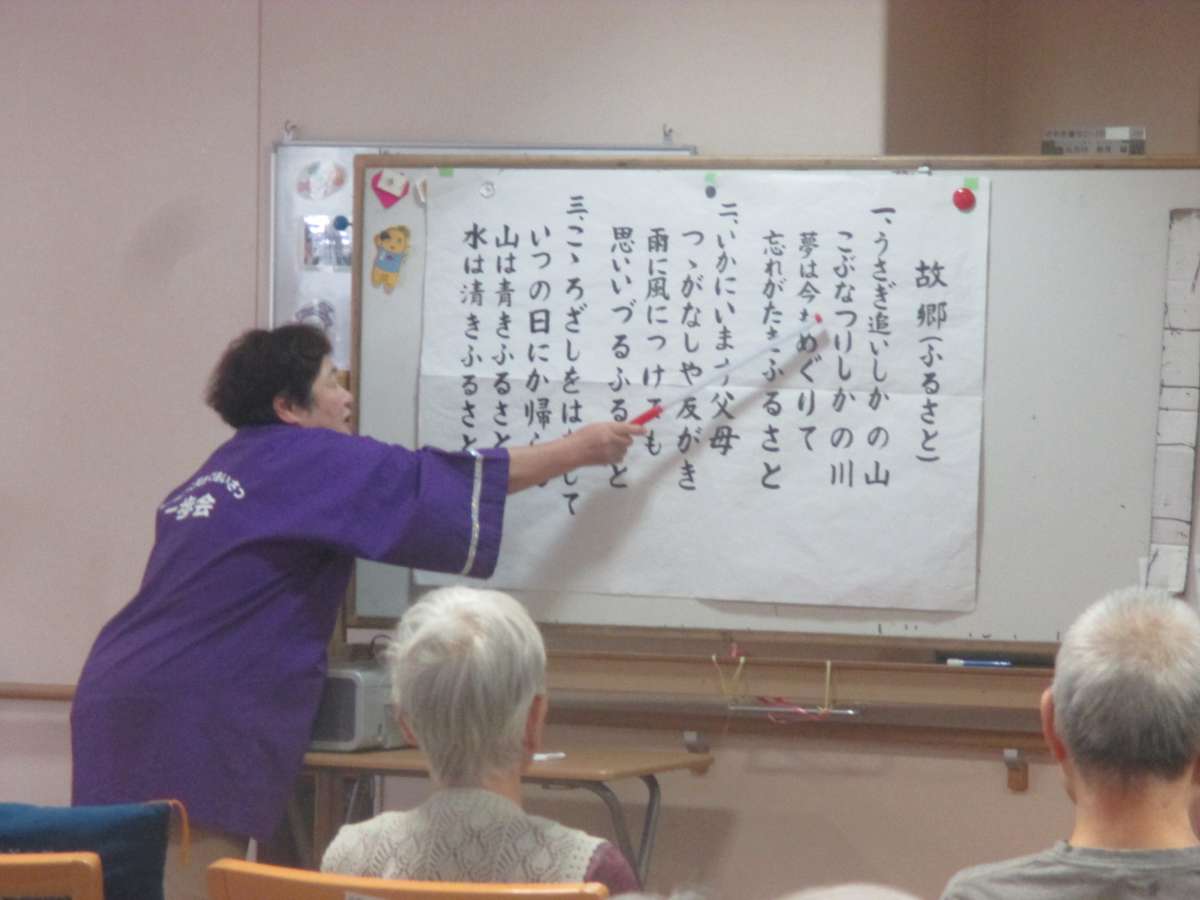 故郷(ふるさと)
一、うさぎ追いしかの山
こぶなつりしかの川
夢は今もめぐりて
忘れがたきふるさと
二、いかにいます父母
つゝがなしや友がき
雨に風につけても
思いいづるふるさと
三、こゝろざしをはたして
いつの日にか帰らん
山は青きふるさと
水は清きふるさと
あいさつ
一歩会